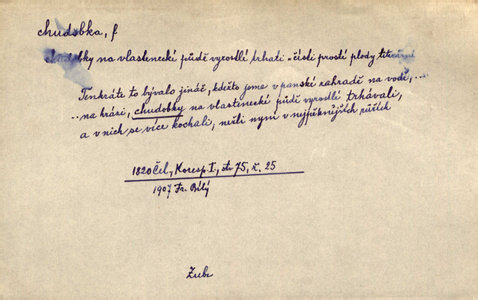 chudobka, f
chudobky na vlastenecké půdě vyrostlé trhati = čísti prosté plody literární
Tenkráte to bývalo jináč, kdežto jsme v panské zahradě na vodě, ...
... na hrázi, chudobky na vlastenecké půdě vyrostlé trhávali,
a v nich se více kochali, nežli nyní v nejpěknějších růžích
1820 Čel, Koresp. I, str 75, č. 25
1907 Fr. Bílý
Zubr